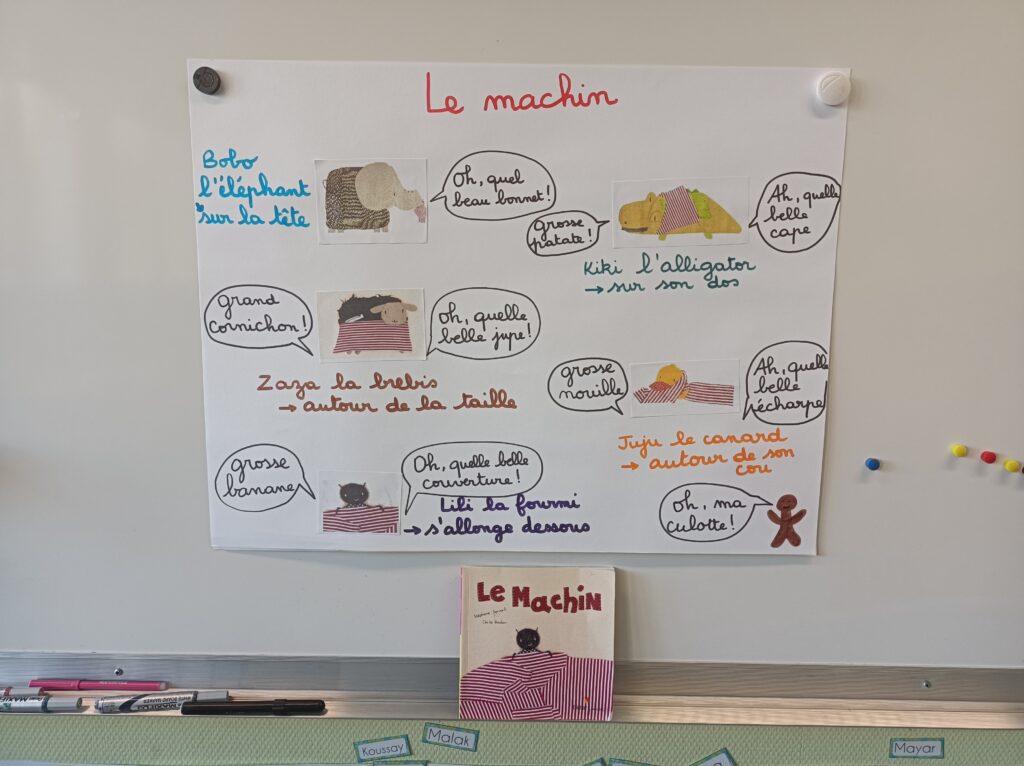 Le machin
Bobo
l'éléphant
sur la tête
Oh, quel
beau bonnet!
grosse
patate!
Ah, quelle
belle
cape
Kiki l'alligator
→ sur son dos
grand
cornichon!
oh, quelle
belle jupe!
Zaza la brebis
→ autour de la taille
grosse
nouille
Ah, quelle
belle
écharpe
Juju le canard
→ autour de son
cou
grosse
banane
Oh, quelle belle
couverture!
Lili la fourmi
→ s'allonge dessous
oh, ma
culotte!
Le Machin
Koussay
Malak
Mayar